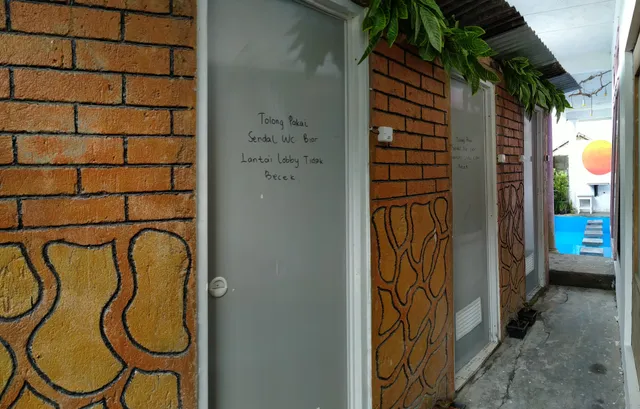 Tolong Pakai
Sendal WC Biar
Lantai Lobby Tidak
Becek